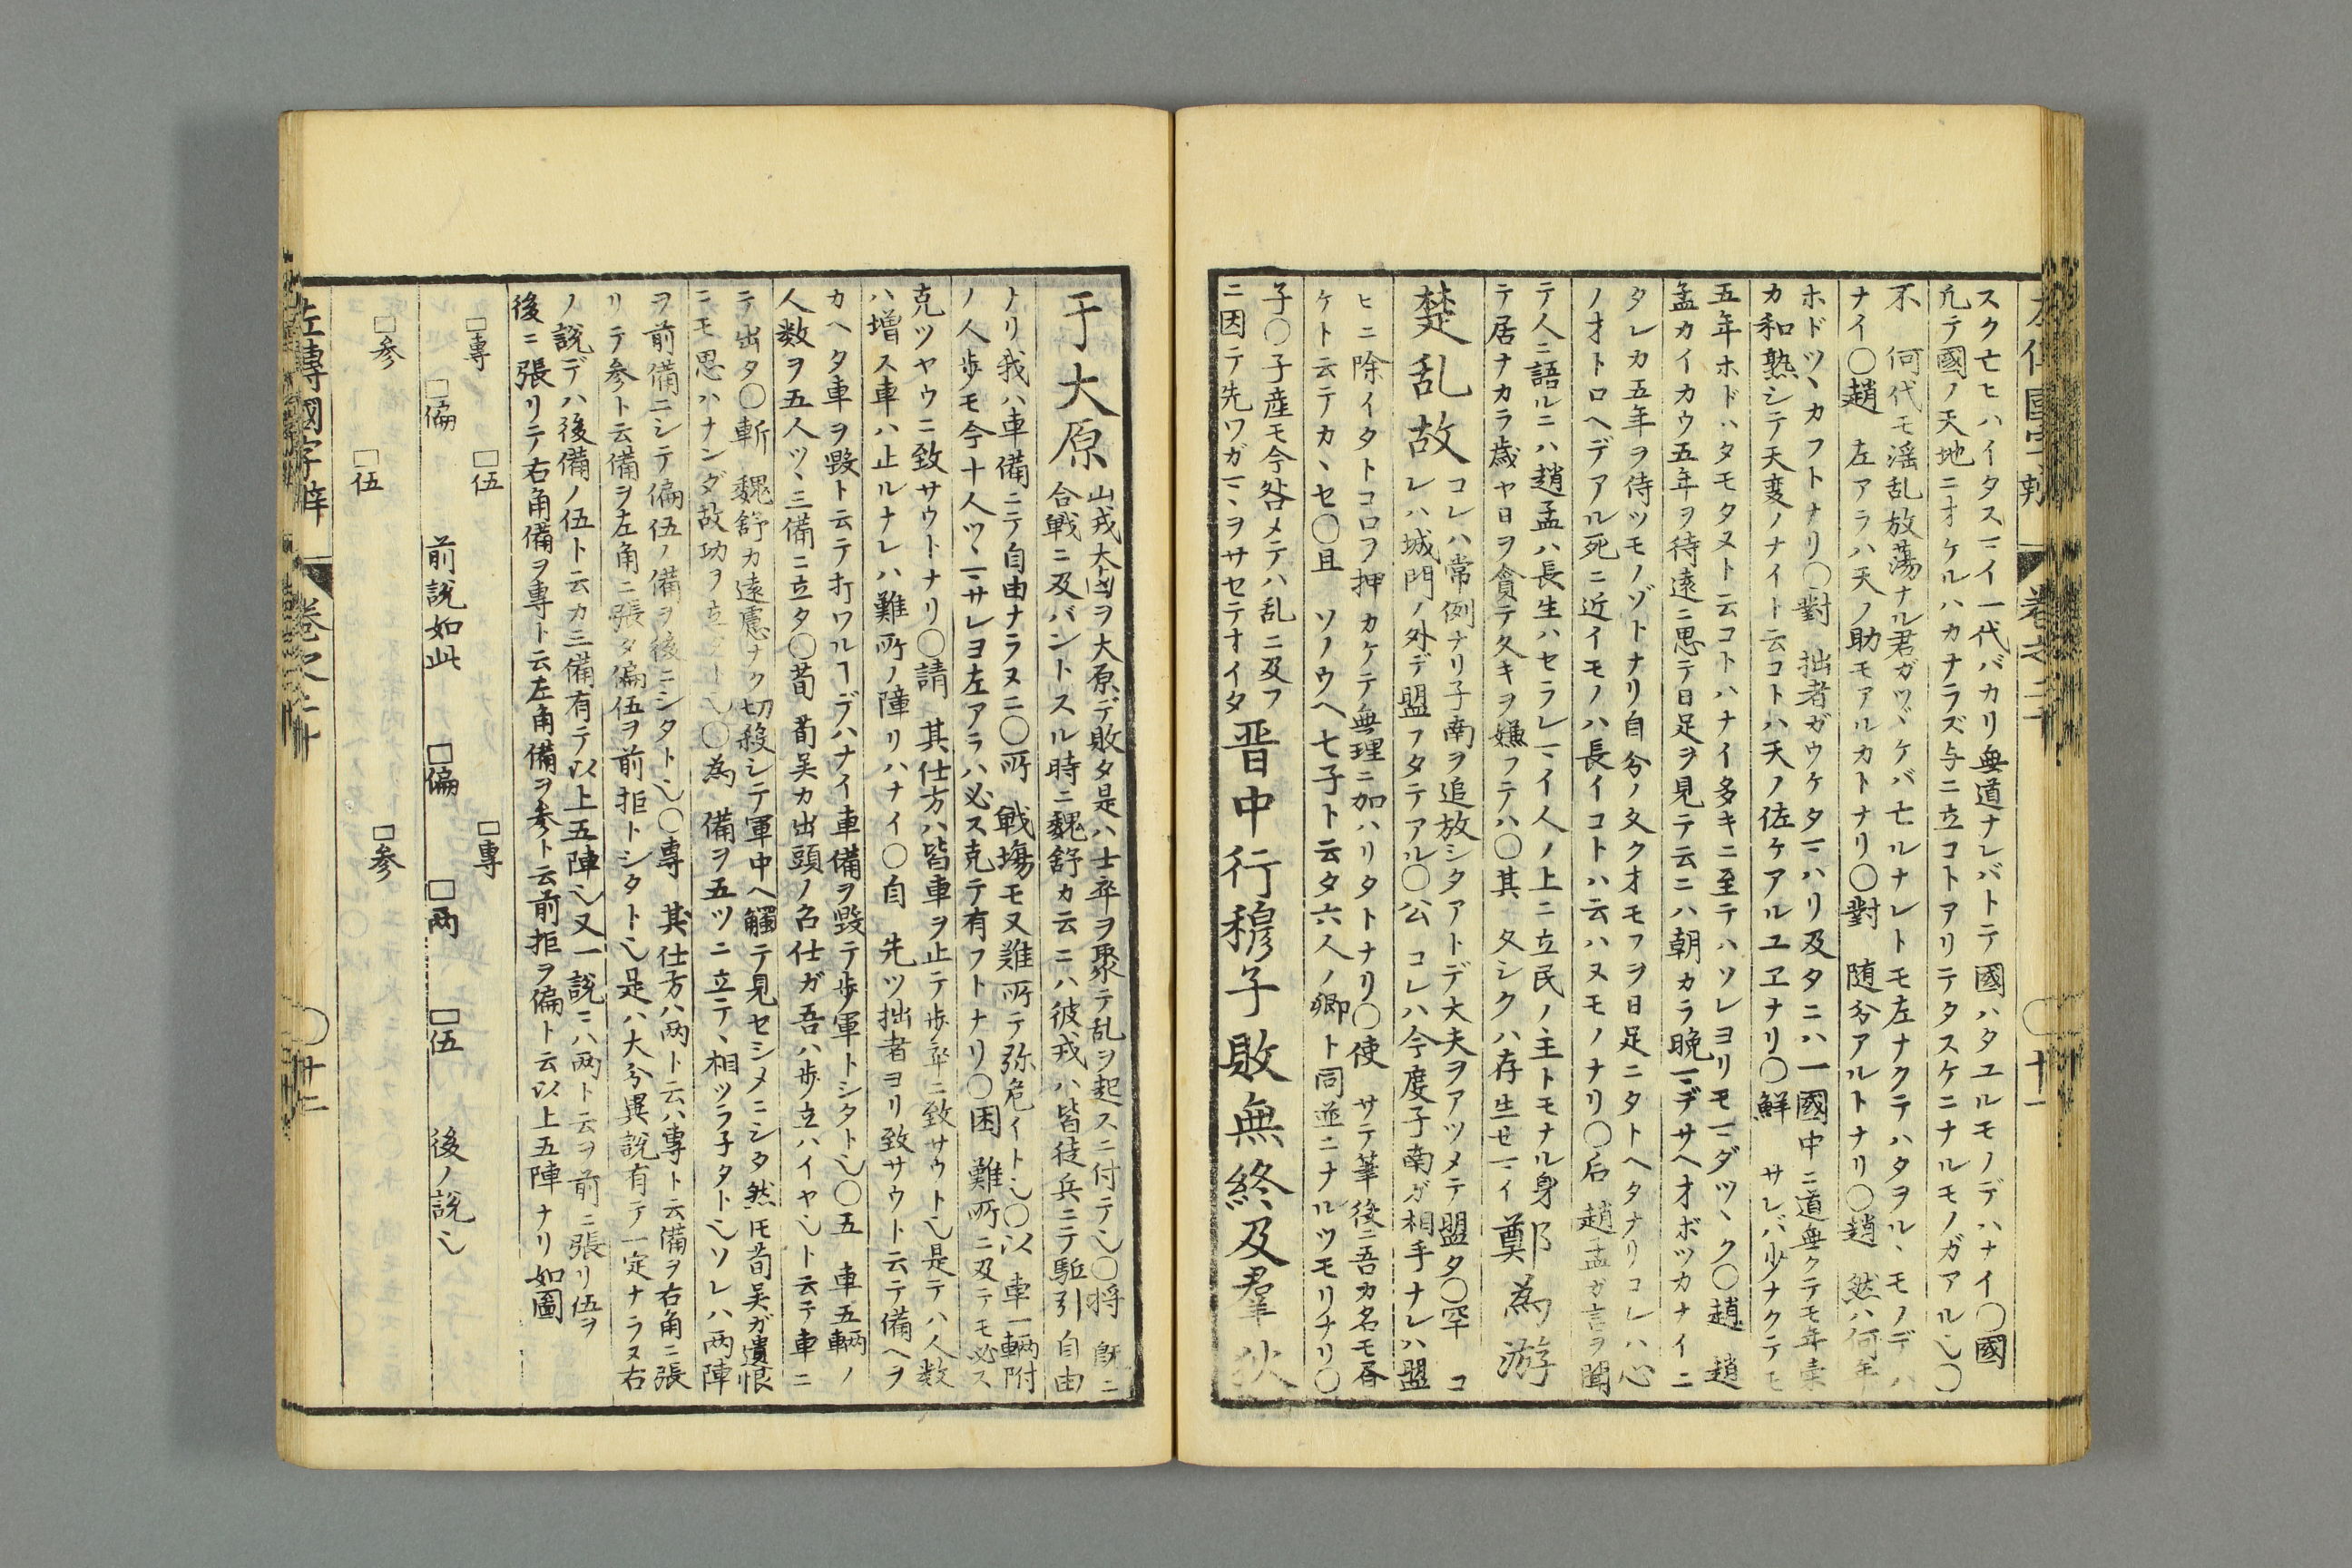 スクセヒハイタスマイ一代バカリ無道ナレバトテ國ハタユルモノデハナイ〇國
凢テ國ノ天地ニオケルハカナラズ与ニ立コトアリテタスケニナルモノガアル也〇
不 何代モ淫乱放蕩ナル君ガツヾケバ亡ルナレトモ左ナクテハタヲルヽモノデハ
ナイ〇趙 左アラハ天ノ助モアルカトナリ〇對 随分アルトナリ〇趙 然ハ何年
ホドツヽカフトナリ〇對 拙者ガウケタマハリ及タニハ一國中ニ道無クテモ年来
カ和熟シテ天変ノナイト云コトハ天ノ佐ケアルユヱナリ〇鮮 サレバ少ナクテモ
五年ホドハタモタヌト云コトハナイ多キニ至テハソレヨリモマダツヽク〇趙 趙
孟カイカウ五年ヲ待遠ニ思テ日足ヲ見テ云ニハ朝カラ晩マデサヘオボツカナイニ
タレカ五年ヲ待ツモノゾトナリ自分ノ久クオモフヲ日足ニタトヘタナリコレハ心
ノオトロヘデアル死ニ近イモノハ長イコトハ云ハヌモノナリ〇后 趙孟ガ言ヲ聞
テ人ニ語ルニハ趙孟ハ長生ハセラレマイ人ノ上ニ立民ノ主トモナル身
テ居ナカラ歳ヤ日ヲ貪テ久キヲ嫌フテハ〇其 久シクハ存生セマイ
鄭為游
楚乱故
コレハ常例ナリ子南ヲ追放シタアトデ大夫ヲアツメテ盟タ〇罕 コ
レハ城門ノ外デ盟フタテアル〇公 コレハ今度子南ガ相手ナレハ盟
ヒニ除イタトコロヲ押カケテ無理ニ加ハリタトナリ〇使 サテ筆後ニ吾カ名モ吞
ケト云テカヽセ〇且 ソノウヘ七子ト云タ六人ノ卿ト同並ニナルツモリナリ〇
子〇子産モ今咎メテハ乱ニ及フ
ニ因テ先ワガマヽヲサセテオイタ
晋中行穆子敗無終及羣狄
于大原
山戎大国ヲ大原デ敗タ是ハ士卒ヲ聚テ乱ヲ起スニ付テ也〇将 既ニ
合戰ニ及バントスル時ニ魏舒カ云ニハ彼戎ハ皆徒兵ニテ駈引自由
ナリ我ハ車備ニテ自由ナラヌニ〇所 戰塲モ又難所テ弥危イト也〇以 車一輛附
ノ人歩モ今十人ツヽマサレヨ左アラハ必ス克テ有フトナリ〇困 難所ニ及テモ必ス
克ツヤウニ致サウトナリ〇請 其仕方ハ皆車ヲ止テ歩卒ニ致サウト也是テハ人数
ハ増ス車ハ止ルナレハ難所ノ障リハナイ〇自 先ツ拙者ヨリ致サウト云テ備ヘヲ
カヘタ車ヲ毀ト云テ打ワルヿデハナイ車備ヲ毀テ歩軍トシタト也〇五 車五輛ノ
人数ヲ五人ツヽ三備ニ立タ〇荀 荀吴カ出頭ノ名仕ガ吾ハ歩立ハイヤ也ト云テ車ニ
テ出タ〇斬 魏舒カ遠慮ナク切殺シテ軍中ヘ觸テ見セシメニシタ然𪜈荀吴ガ遺恨
ニモ思ハナンダ故功ヲ立タト也〇為 備ヲ五ツニ立テヽ相ツラ子タト也ソレハ两陣
ヲ前備ニシテ偏伍ノ備ヲ後ニシタト也〇専 其仕方ハ两ト云ハ専ト云備ヲ右角ニ張
リテ参ト云備ヲ左角ニ張タ偏伍ヲ前拒トシタト也是ハ大分異説有テ一定ナラヌ右
ノ説デハ後備ノ伍ト云カ三備有テ以上五陣也又一説ニハ两ト云ヲ前ニ張リ伍ヲ
後ニ張リテ右角備ヲ専ト云左角備ヲ参ト云前拒ヲ偏ト云以上五陣ナリ如圖
□専 □伍 □専
□偏 前説如此 □偏 □两 □伍 後ノ説也
□参 □伍 □参
左傳國字辯 卷之二十 〇十二